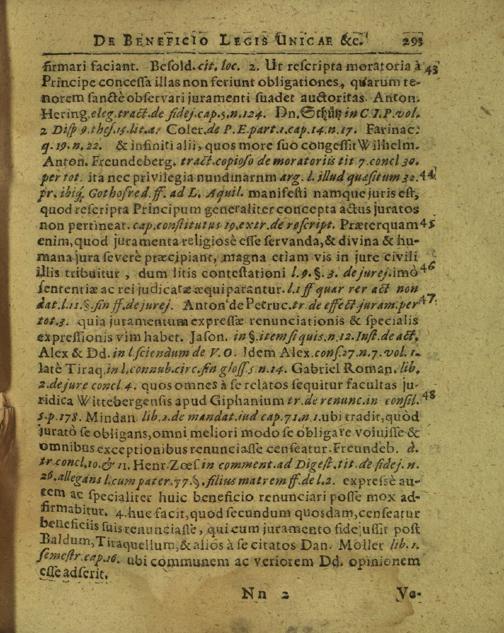 DE BENEFICIO LEGIS UNICAE &c. 293
firmari faciant. Besold. cit. loc. 2. Ut rescripta moratoria à 43
Principe concessa illas non feriunt obligationes, quarum te-
norem sanctè observari juramenti suadet auctoritas. Anton.
Hering. eleg. tract. de fidej. cap. 5. n. 124. Dn. Schütz in C. I. P. vol.
2 Disp 9. thes. 15. lit. a. Coler. de P. E. part. 1. cap. 14. n. 17. Farinac.
q. 19. n. 22. & infiniti alii, quos more suo congessit Wilhelm.
Anton. Freundeberg. tract. copioso de moratoriis tit 7. concl 30.
per tot. ita nec privilegia nundinarum arg. l. illud quæsitum 32. 44
pr. ibiq. Gothofred. ff. ad L. Aquil. manifesti namque juris est,
quod rescripta Principum generaliter concepta actus juratos
non pertineat. cap. constitutus 19. extr. de rescript. Præterquam 45
enim, quod juramenta religiosè esse servanda, & divina & hu-
mana jura severè præcipiant, magna etiam vis in jure civili
illis tribuitur, dum litis contestationi l. 9. §. 3. de jurej. imò 46
sententiæ ac rei judicatæ æquiparantur. l. 1 ff quar rer act non
dat. l. 11. §. fin ff. de jurej. Anton. de Petruc. tr. de effect. juram. per 47.
tot. 3. quia juramentum expressæ renunciationis & specialis
expressionis vim habet. Jason. in §. item si quis. n. 12. Inst. de act.
Alex & Dd. in l. sciendum de V. O. Idem Alex. cons. 27. n. 7. vol. 1.
latè Tiraq. in l. connub. circ. fin gloss. 5. n. 14. Gabriel Roman. lib.
2. de jure concl 4. quos omnes à se relatos sequitur facultas ju-
ridica Wittebergensis apud Giphanium tr. de renunc. in consil. 48
5. p. 178. Mindan. lib. 2. de mandat. iud cap. 71. n. 1. ubi tradit, quòd
juratò se obligans, omni meliori modo se obligare voluisse &
omnibus exceptionibus renunciasse censeatur. Freundeb. d.
tr. concl. 10. & 11. Henr. Zoes. in comment. ad Digest. tit. de fidej. n.
26. allegans l. cum pater. 77. §. filius matrem ff. de l. 2. expressè au-
tem ac specialiter huic beneficio renunciari posse mox ad-
firmabitur. 4. huc facit, quod secundum quosdam, censeatur
beneficiis suis renunciasse, qui cum juramento fidejussit post
Baldum, Tiraquellum, & aliòs à se citatos Dan. Moller lib. 1.
semestr. cap. 16. ubi communem ac veriorem Dd. opinionem
esse adserit.
Nn 2 Ve-